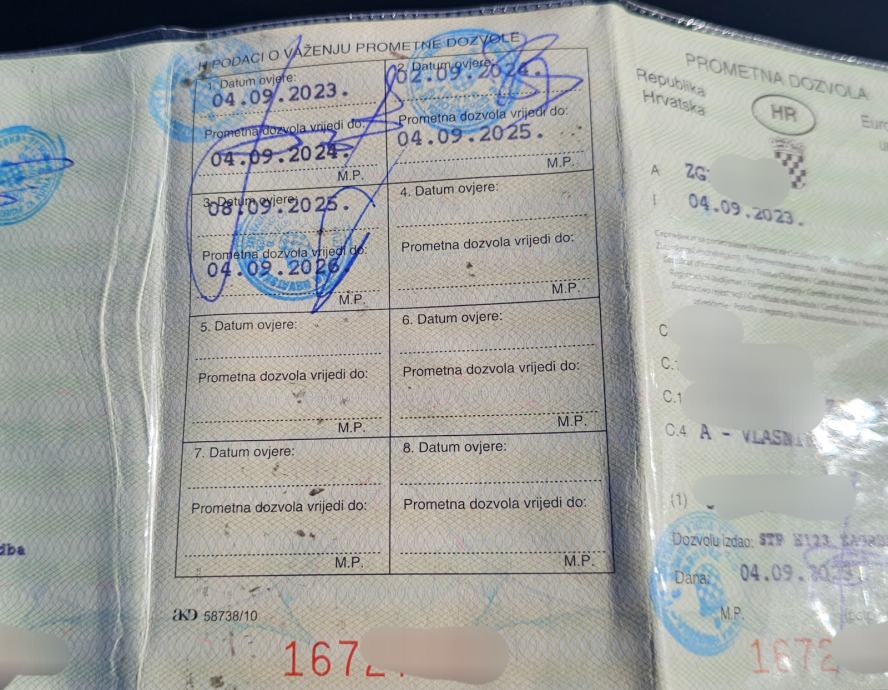 H PODACI O VAŽENJU PROMETNE DOZVOLE
1. Datum ovjere:
04.09.2023.
Prometna dozvola vrijedi do:
04.09.2024.
M.P.
2. Datum ovjere:
02.09.2024.
Prometna dozvola vrijedi do:
04.09.2025.
M.P.
3. Datum ovjere:
08.09.2025.
Prometna dozvola vrijedi do:
04.09.2026.
M.P.
4. Datum ovjere:
Prometna dozvola vrijedi do:
M.P.
5. Datum ovjere:
Prometna dozvola vrijedi do:
M.P.
6. Datum ovjere:
Prometna dozvola vrijedi do:
M.P.
7. Datum ovjere:
Prometna dozvola vrijedi do:
M.P.
8. Datum ovjere:
Prometna dozvola vrijedi do:
M.P.
AKD 58738/10
167
PROMETNA DOZVOLA
Republika
Hrvatska
HR
A ZG
I 04.09.2023.
C
C.4 A -
(1)
Dozvolu izdao: STP
Dana: 04.09.2023.
M.P.
1672